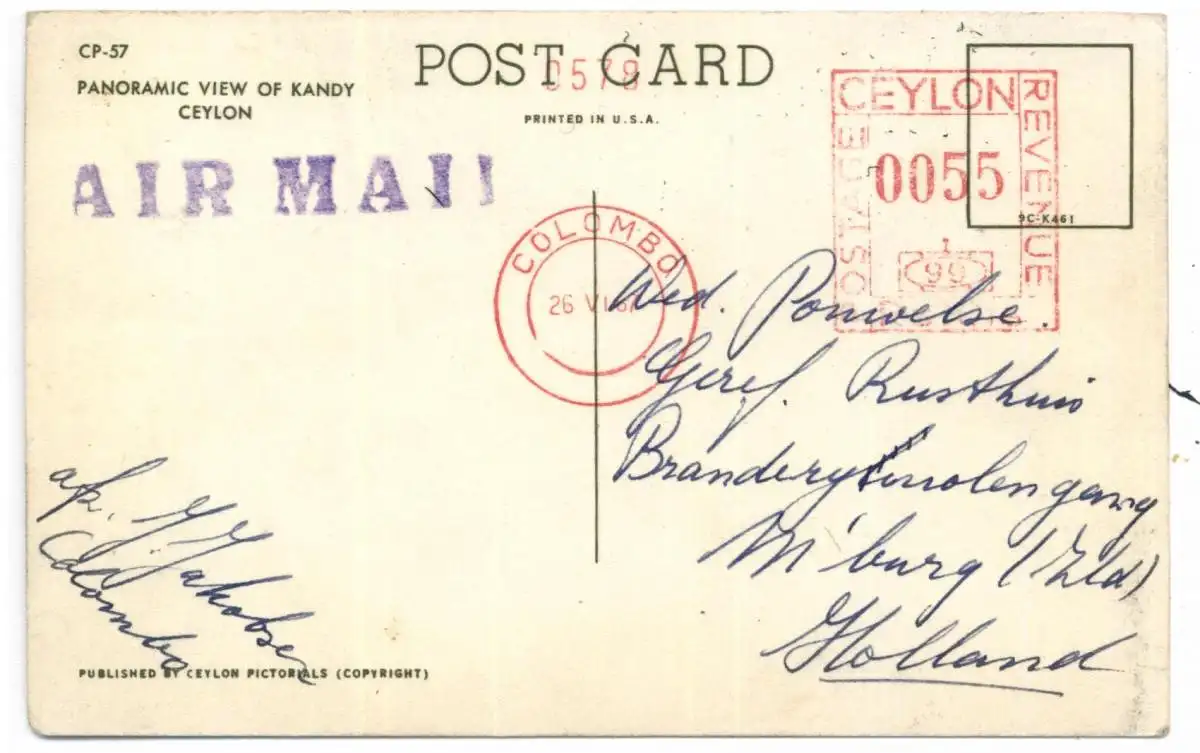 CP-57
PANORAMIC VIEW OF KANDY
CEYLON
POST CARD
0578
PRINTED IN U.S.A.
AIR MAIL
CEYLON
POSTAGE
REVENUE
0055
1
99
9C-K461
COLOMBO
26 VI
Wed. Pouwelse.
Geref. Rusthuis
Branderymolengang
M'burg (Zld)
Holland
afz. Jakobsen
Colombo
PUBLISHED BY CEYLON PICTORIALS (COPYRIGHT)